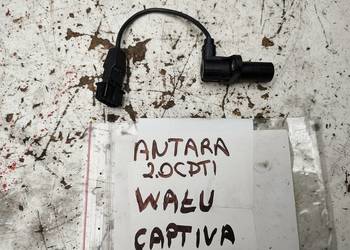 ANTARA
2.0CDTI
WAŁU
CAPTIVA